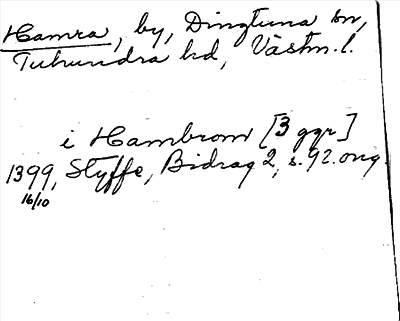 Hamra, by, Dingtuna sn,
Tuhundra hd, Västm. l.
i Hambrom [3 ggr]
1399, Styffe, Bidrag 2, s. 92. orig.
16/10